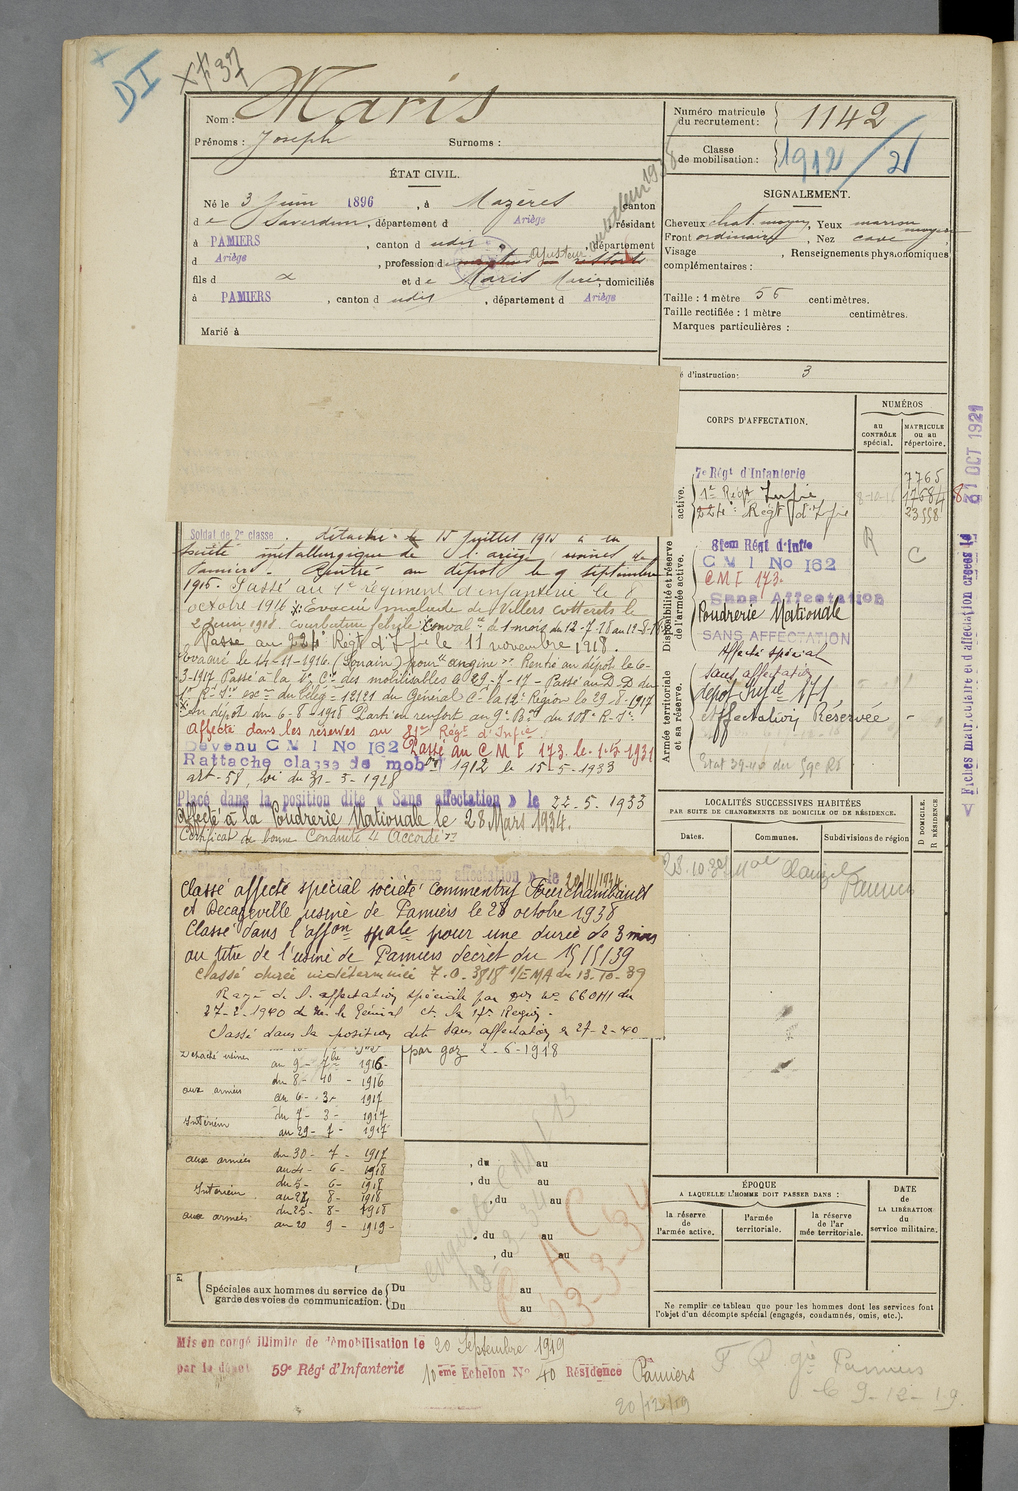 DI
37
Nom: Maris
Prénoms : Joseph Surnoms :
Numéro matricule du recrutement: 1142
Classe de mobilisation: 1912 / 21
ÉTAT CIVIL.
Né le 3 Juin 1896, à Mazères, canton
de Saverdun, département d Ariège, résidant
à PAMIERS, canton d udit, département
d Ariège, profession de ajusteur
fils d et de Maris Marie, domiciliés
à PAMIERS, canton d udit, département d Ariège
Marié à
SIGNALEMENT.
Cheveux chat. moyen, Yeux marron moyen
Front ordinaire, Nez cave
Visage , Renseignements physionomiques
complémentaires :
Taille : 1 mètre 56 centimètres.
Taille rectifiée : 1 mètre centimètres.
Marques particulières :
é d'instruction: 3
CORPS D'AFFECTATION.
NUMÉROS
au CONTRÔLE spécial.
MATRICULE ou au répertoire.
active.
7e Régt d'Infanterie 7765
1er Régt Infie 8-10-16 17684
224e Régt d'Infie 23558
Disponibilité et réserve de l'armée active.
81em Régt d'Infie R C
C M I No 162
C M I 173.
Sans Affectation
Poudrerie Nationale
SANS AFFECTATION
Affecté spécial
Armée territoriale et sa réserve.
sans affectation
dépôt Infie 171
Affectation Réservée
Fiches matriculaire et d'affectation créées le 21 OCT 1921
Soldat de 2e classe. détaché le 15 juillet 1915 à la
Société métallurgique de l'ariège usines de
Pamiers. Rentré au dépôt le 9 septembre
1916. Passé au 1er régiment d'infanterie le 8
octobre 1916. Evacué malade de Villers cotterets le
2 juin 1918. courbature fébrile. Conval ce de 1 mois du 12-7-18 au 12-8-18.
Passé au 224e Régt d'Infie le 11 novembre 1918.
Evacué le 14-11-1916. (Louain) pour angine. Rentré au dépôt le 6-
3-1917. Passé à la Cie des mobilisables le 29-7-17 - Passé au D.D. du
1er R.Ie exon du télég. 12121 du Général Ct la 12e Région le 29-8-1917
au dépôt du 6-8-1918 Parti en renfort au 9e Bon du 108e R.Ie
Affecté dans les réserves au 81e Régt d'Infie
Devenu C M I No 162 Passé au C M I 173 le 1-5-1931
Rattaché classe de mobon 1912 le 15-5-1933
art. 58, loi du 31-3-1928
Placé dans la position dite « Sans affectation » le 22-5-1933
Affecté à la Poudrerie Nationale le 28 Mars 1934.
Certificat de bonne Conduite Accordé
affectation » le 20/11/1934
Classé affecté spécial société Commentry Fourchambault
et Decazeville usine de Pamiers le 28 octobre 1938
Classé dans l'affon spale pour une durée de 3 mois
au titre de l'usine de Pamiers décret du 15/5/39
Classé durée indéterminée 7.0.3818 1/EMA du 13-10-39
Rayé de l'affectation spéciale par No 660H1 du
27-2-1940 de M. le Général Ct la 17e Région.
Classé dans la position dite sans affectation le 27-2-40
par gaz 2-6-1918
Détaché usines
au 9- 7bre 1916-
du 8- 10 - 1916
aux armées
au 6- 3- 1917
Intérieur
du 7- 3- 1917
au 29- 7- 1917
aux armées
du 30- 7- 1917
au 4- 6- 1918
Intérieur
du 5- 6- 1918
au 24 8- 1918
aux armées
du 25- 8- 1918
au 20 9- 1919-
, du au
, du au
, du au
, du au
, du au
Spéciales aux hommes du service de garde des voies de communication. Du au
Du au
LOCALITÉS SUCCESSIVES HABITÉES
PAR SUITE DE CHANGEMENTS DE DOMICILE OU DE RÉSIDENCE.
Dates. Communes. Subdivisions de région
D DOMICILE.
R RÉSIDENCE
Pamiers
ÉPOQUE
A LAQUELLE L'HOMME DOIT PASSER DANS :
la réserve de l'armée active.
l'armée territoriale.
la réserve de l'armée territoriale.
DATE de LA LIBÉRATION du service militaire.
Ne remplir ce tableau que pour les hommes dont les services font
l'objet d'un décompte spécial (engagés, condamnés, omis, etc.).
Mis en congé illimité de démobilisation le 20 Septembre 1919
par le dépôt 59e Régt d'Infanterie 10eme Echelon No 40 Résidence Pamiers
20/12/19
F R gie Pamiers
le 9-12-19.